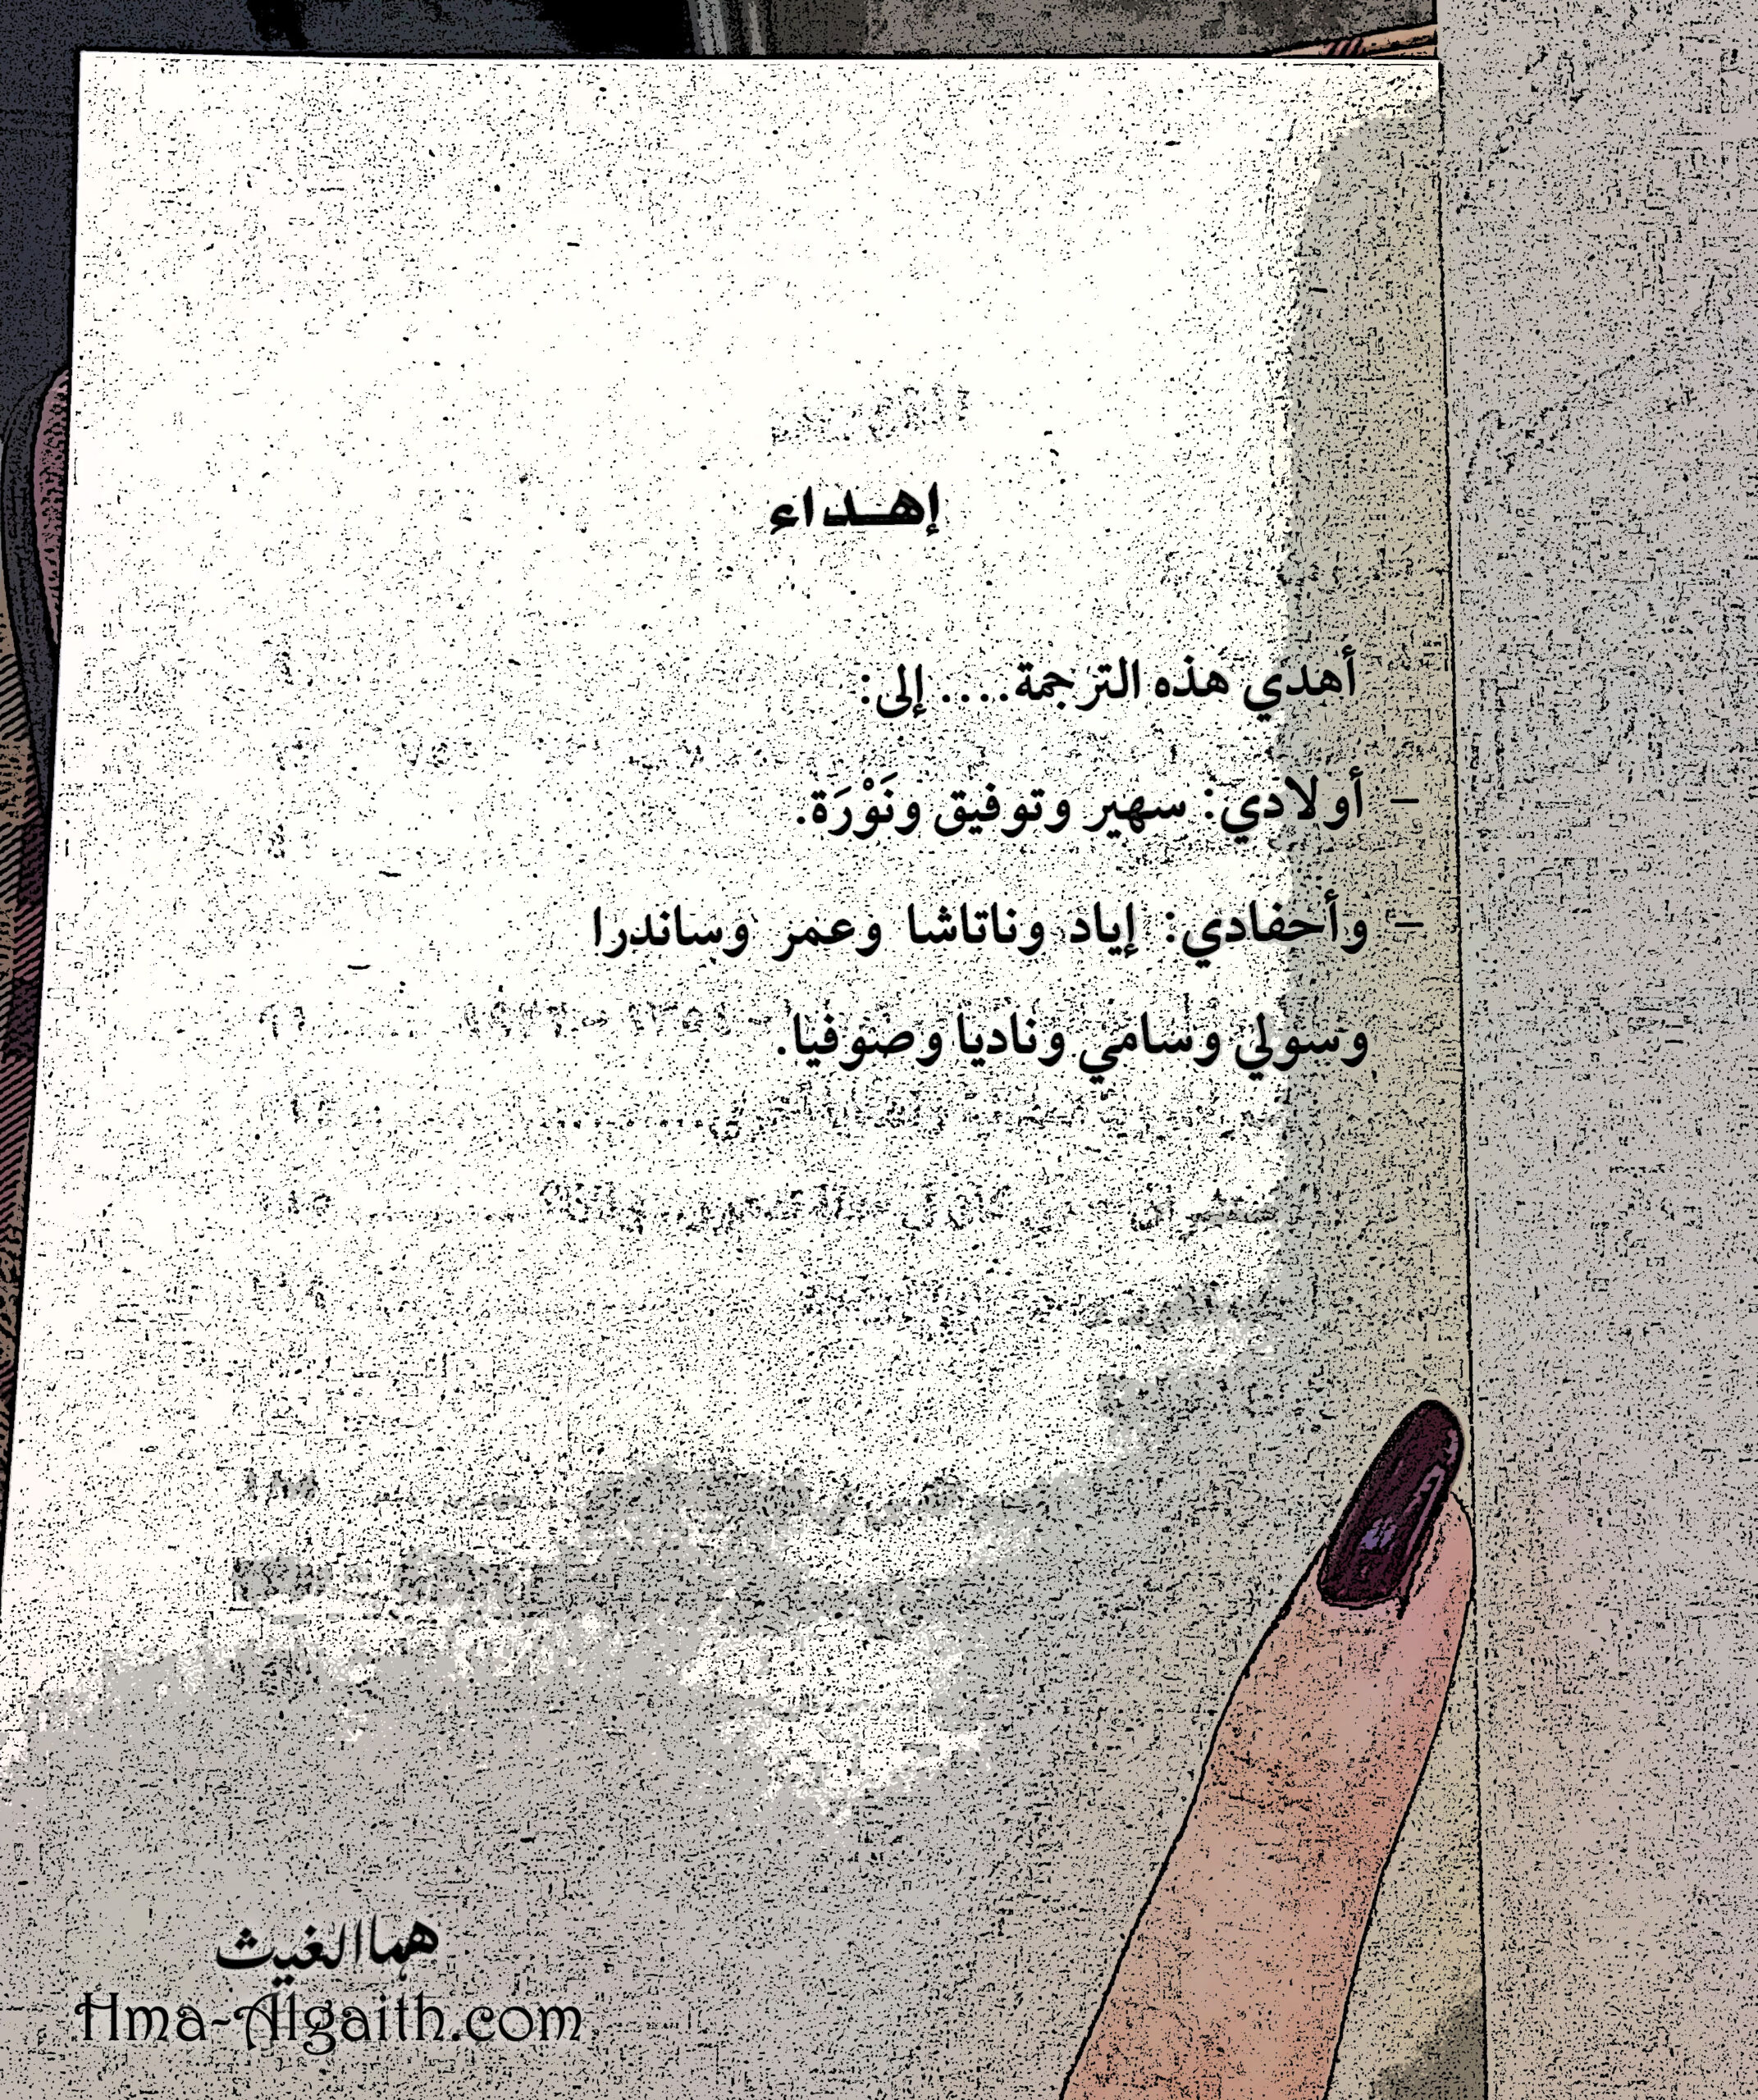 إهداء
أهدي هذه الترجمة.... إلى:
– أولادي: سهير وتوفيق ونَوْرَة.
– وأحفادي: إياد وناتاشا وعمر وساندرا
وسولي وسامي وناديا وصوفيا.
هما الغيث
Hma-Algaith.com